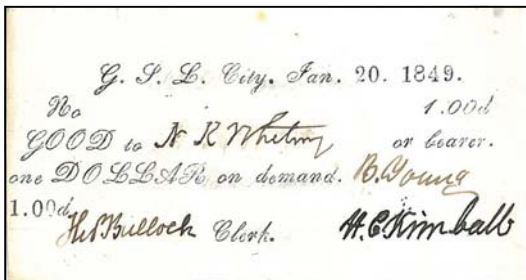 G. S. L. City, Jan. 20. 1849.
No 1.00d
GOOD to N K Whitney or bearer.
one DOLLAR on demand. B. Young
1.00d
Ths Bullock Clerk. H. C Kimball